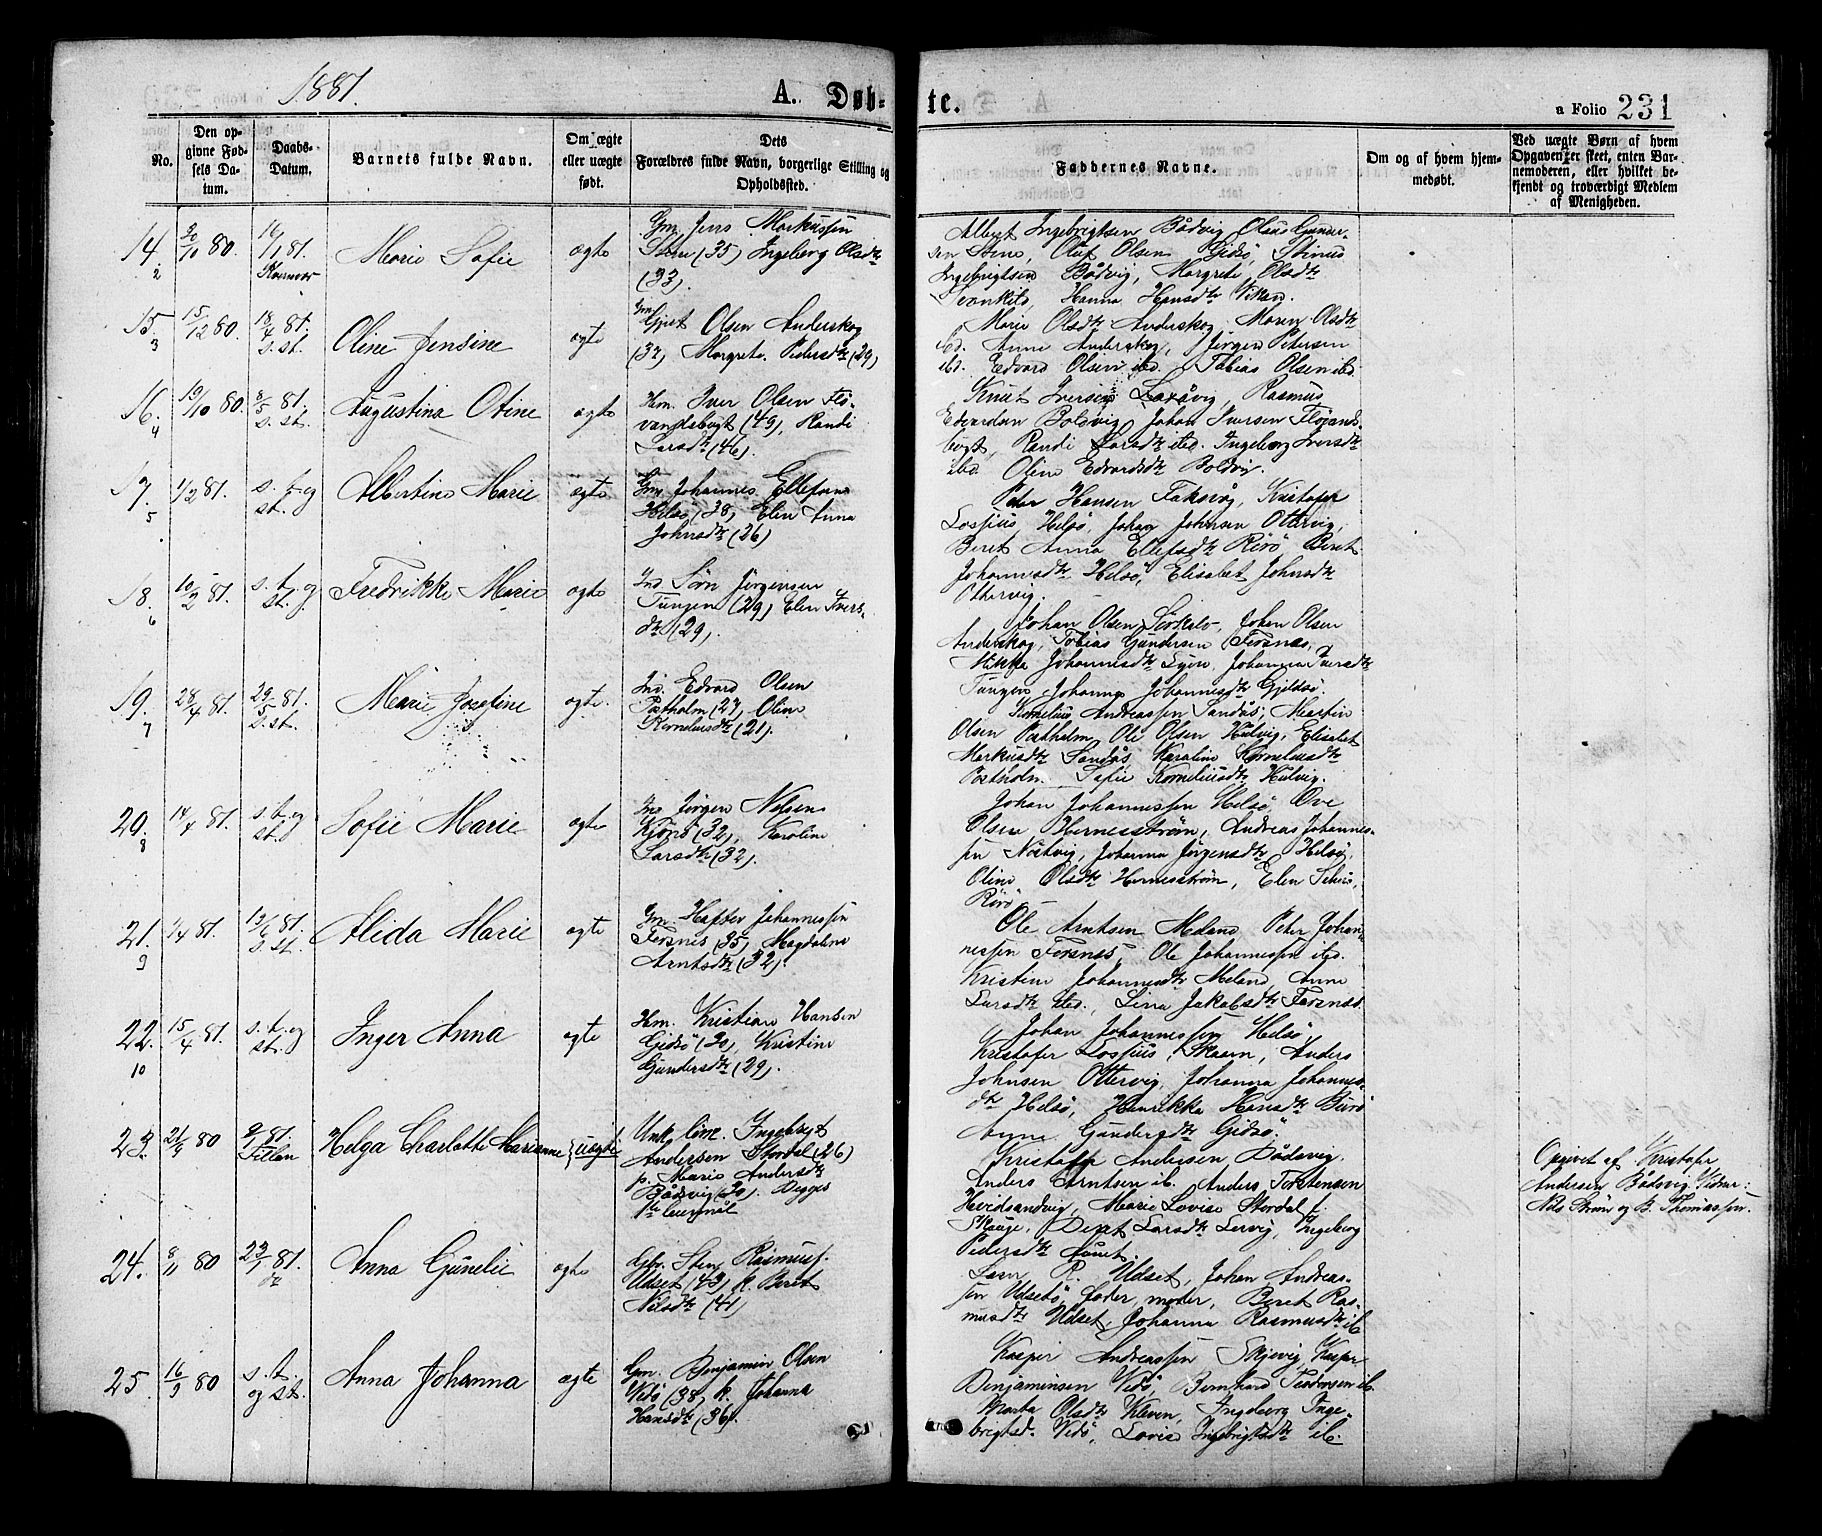 1881.
A. Døb=
te.
a Folio 231
No.
Den op-
givne Fød-
sels Da-
tum.
Daabs-
Datum.
Barnets fulde Navn.
Om ægte
eller uægte
født.
Dets
Forældres fulde Navn, borgerlige Stilling og
Opholdssted.
Faddernes Navne.
Om og af hvem hjem-
medøbt.
Ved uægte Børn af hvem
Opgaven er skeet, enten Bar-
nemoderen, eller hvilket be-
kjendt og troværdigt Medlem
af Menigheden.
14.
2
80
81.
Marie Sofie
ægte
Gm. Jens Markussen
(35) Ingeborg Olsdtr
(33).
Albert Ingebrigtsen Bådvig Olaus Gunder-
sen Oluf Olsen Gidsø,
Ingebrigtsen Bådvig, Margrete Olsdtr
Hanna Hansdtr Vikan.
15.
3
15/12 80
18/4 81.
s. st.
Oline Jensine
ægte
Gm. Olsen Anderskog
(37) Margrete Pedersdtr (29)
Marie Olsdtr Anderskog, Maren Olsdtr
ibd. Anne Anderskog, Jørgen Petersen
ibd. Edvard Olsen ibd. Tobias Olsen ibd.
16.
4
19/10 80.
8/5 81.
s. st.
Augustina Otine
ægte
Hm. Iver Olsen Flø-
vandsbugt (49), Randi
Larsdtr (46).
Knut Iversen Laxåvig, Rasmus
Edvardsen Boldvig, Johan Iversen Fløvands-
bugt, Randi Larsdtr ibd. Ingeborg Iversdtr
ibd. Oline Edvardsdtr Boldvig.
17.
5
1/2 81.
s. t. og
st.
Albertine Marie
ægte
Gm. Johannes Ellefsen
Helsø (38) Elen Anna
Johnsdtr (26)
Peder Hansen Faksvåg, Kristofer
Lossius Helsø, Johan Johnsen Ottervig,
Beret Anna Ellefsdtr Rørø, Beret
Johannesdtr Helsø, Elisabet Johnsdtr
Ottervig.
18.
6
10/2 81.
s. t. og
st.
Fredrikke Marie
ægte
Ind. Søren Jørgensen
Tungen (29) Elen Ivers-
dtr (29).
Johan Olsen Johan Olsen
Anderskog, Tobias Gundersen Forsnes,
Mikka Johannesdtr Johanna Iversdtr
Tungen, Johanna Johannesdtr Gjeldsø.
19.
7
28/4 81.
29/5 81.
s. st.
Marie Josefine
ægte.
Ind. Edvard Olsen
Postholm (27) Oline
Kornelusdtr (21).
Kornelius Andreassen Sandås, Martin
Olsen Postholm, Ole Olsen Hulvig, Elisabet
Markusdtr Sandås, Karoline Kornelusdtr
Postholm, Sofie Korneliusdtr Hulvig.
20.
8
14/4 81.
s. t. og
st.
Sofie Marie
ægte
Ind. Jørgen Nelsen
Kjønø (32), Karoline
Larsdtr (32).
Johan Johannessen Helsø, Ove
Olsen Hernesstrøm, Andreas Johannes-
sen Nostvig, Johanna Jørgensdtr Helsø,
Oline Olsdtr Hernesstrøm, Elen
Rørø
21.
9
1/4 81.
13/6 81.
s. st.
Alida Marie
ægte
Gm. Hafter Johannessen
Forsnes (35) Magdalena
Arntsdtr (32).
Ole Arntsen Meland Peter Johan-
nessen Forsnes, Ole Johannessen ibd.
Kristine Johannesdtr Meland Anne
Larsdtr ibd., Lina Jakobsdtr Forsnes.
22.
10
15/4 81.
s. t. og
st.
Inger Anna
ægte
Hm. Kristian Hansen
Gidsø (30), Kristine
Gundersdtr (29).
Johan Johannessen Helsø,
Kristofer Lossius, Skaarn, Anders
Johnsen Ottervig, Johanna Johannes-
dtr Helsø, Henrikka Hansdtr Burø
Anne Gundersdtr Gidsø.
23.
80
81.
Fillan
Helga Charlotte Marianne
uægte
Unk. Ingebrigt
Andersen Stordal (26)
p. Marie Andersdtr
Bådsvig (30). Begges
1ste Leiermål
Kristofer Andersen Bådsvig,
Anders Arntsen ib. Anders Torstensen
Hevidsandvig, Marie Lovise Stordal f.
Beret Larsdtr Lervig, Ingeborg
Pedersdtr
Opgivet af Kristofer
Andersen Bådsvig. Vidner:
Nils Strøm og B. Thomassen.
24.
8/11 80
23/1 81.
do
Anna Gunelie
ægte
Gbr. Sten Rasmuss.
Udset (43) k. Beret
Nilsdtr (41)
R. Udset, Johan Andreas-
sen Udset, Fader, moder, Beret Ras-
musdtr Udset, Johanna Rasmusdtr ib
25.
16/9 80
s. t.
og st.
Anna Johanna
ægte
Gm. Benjamin Olsen
Vedø (38) k. Johanna
Hansdtr (36).
Kasper Andreassen Skjevig, Kasper
Benjaminsen Vedø, Bernhard ib.
Marta Olsdtr Kleven, Ingeborg Inge-
brigtsd. Vedø, Lovise Ingebrigtsdtr ib.